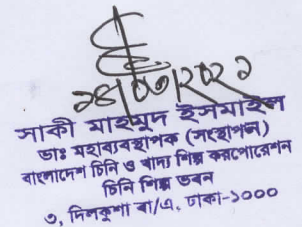 ২৪/০৩/২০২১
সাকী মাহমুদ ইসমাইল
ডাঃ মহাব্যবস্থাপক (সংস্থাপন)
বাংলাদেশ চিনি ও খাদ্য শিল্প করপোরেশন
চিনি শিল্প ভবন
৩, দিলকুশা বা/এ, ঢাকা-১০০০